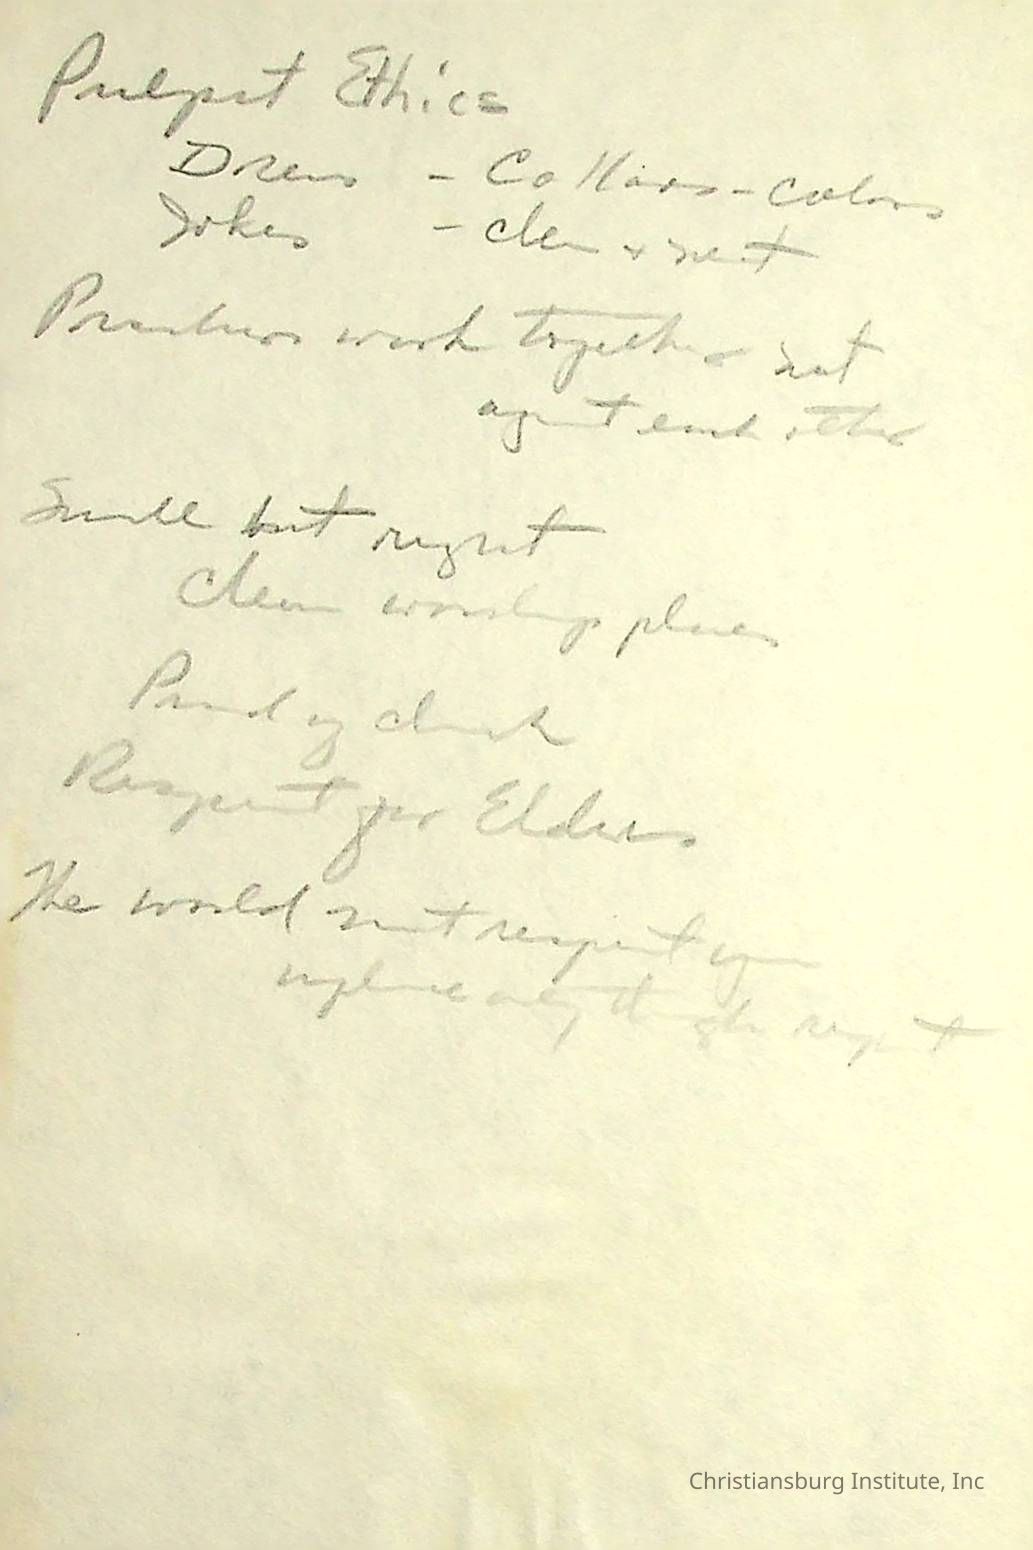 Pulpit Ethics
Dress - Collars - colors
Jokes - clean & neat
Preachers work together not
against each other
Small but
Clean worship places
Proud of church
Respect for Elders
The world not respect you
Christiansburg Institute, Inc